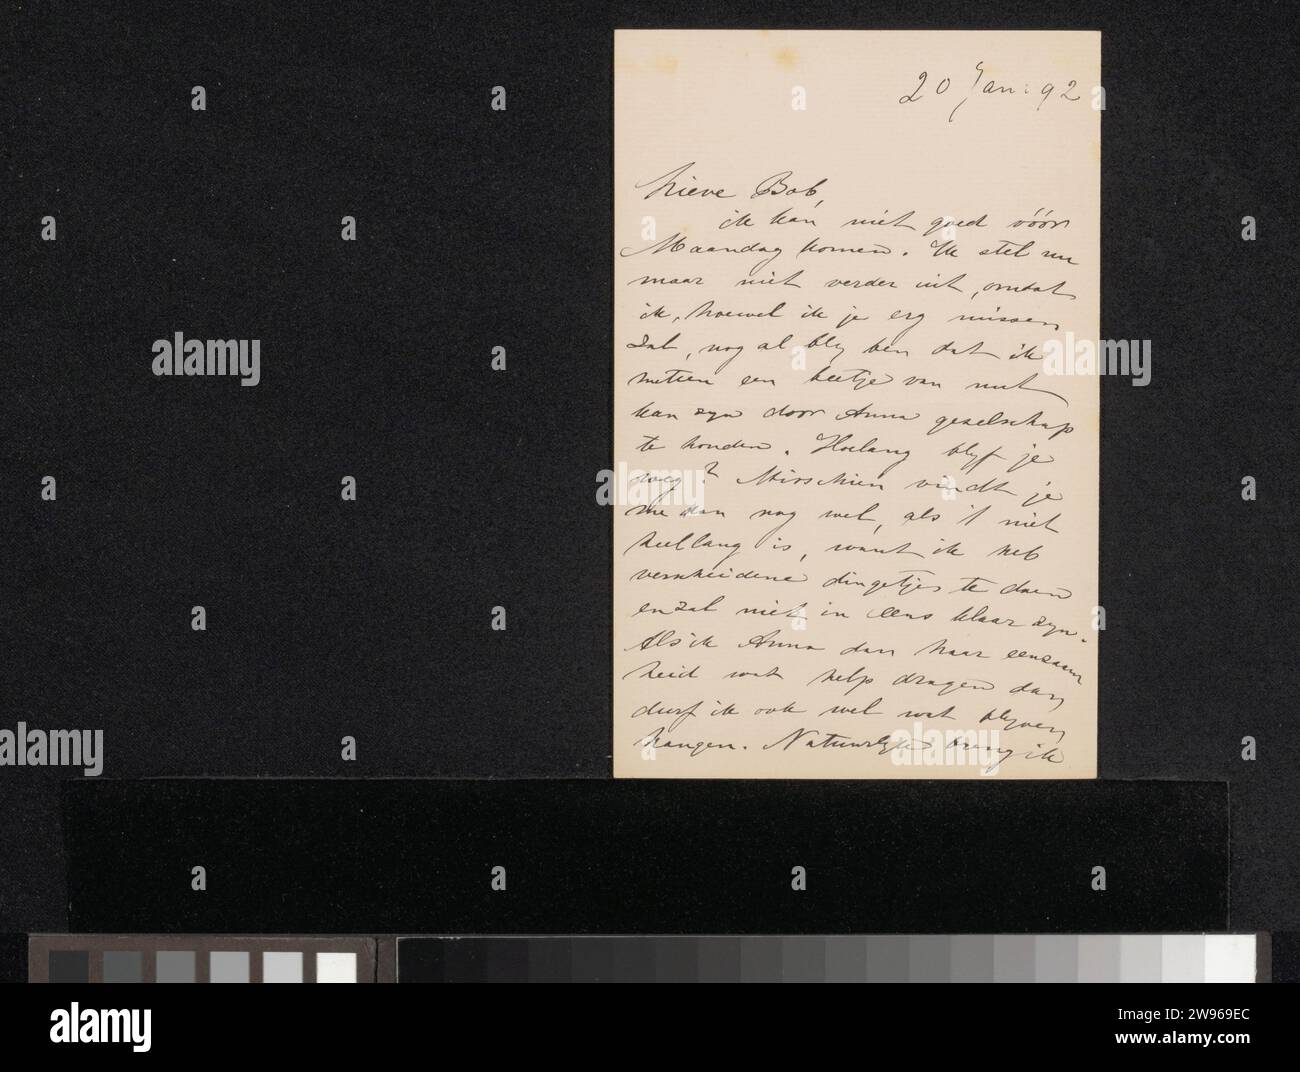 20 Jan: 92
Lieve Bob,
ik kan niet goed vóór
Maandag komen. Ik stel nu
maar niet verder uit, omdat
ik, hoewel ik je erg missen
zal, nog al bly ben dat ik
meteen een beetje van nut
kan zyn door Anna gezelschap
te houden. Hoelang blyf je
weg? Misschien vindt je
me dan nog wel, als 't niet
heel lang is, want ik heb
verscheidene dingetjes te doen
en zal niet in eens klaar zyn.
Als ik Anna dan haar eenzaam
heid wat help dragen dan
durf ik ook wel wat blyven
hangen. Natuurlyk breng ik
alamy
alamy
Image ID: 2W969EC
www.alamy.com